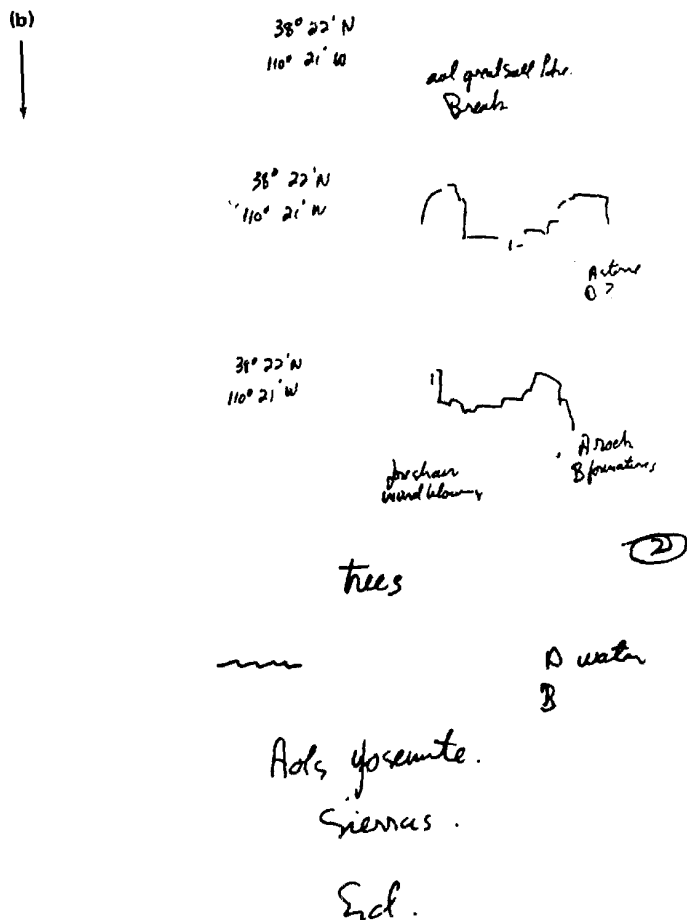 (b)
38° 22' N
110° 21' W
aol great Salt Lake.
Break
38° 22' N
110° 21' W
A stone
B ?
38° 22' N
110° 21' W
A rock
B formations
wind blowing
2
trees
A water
B
Aols Yosemite.
Sierras.
End.